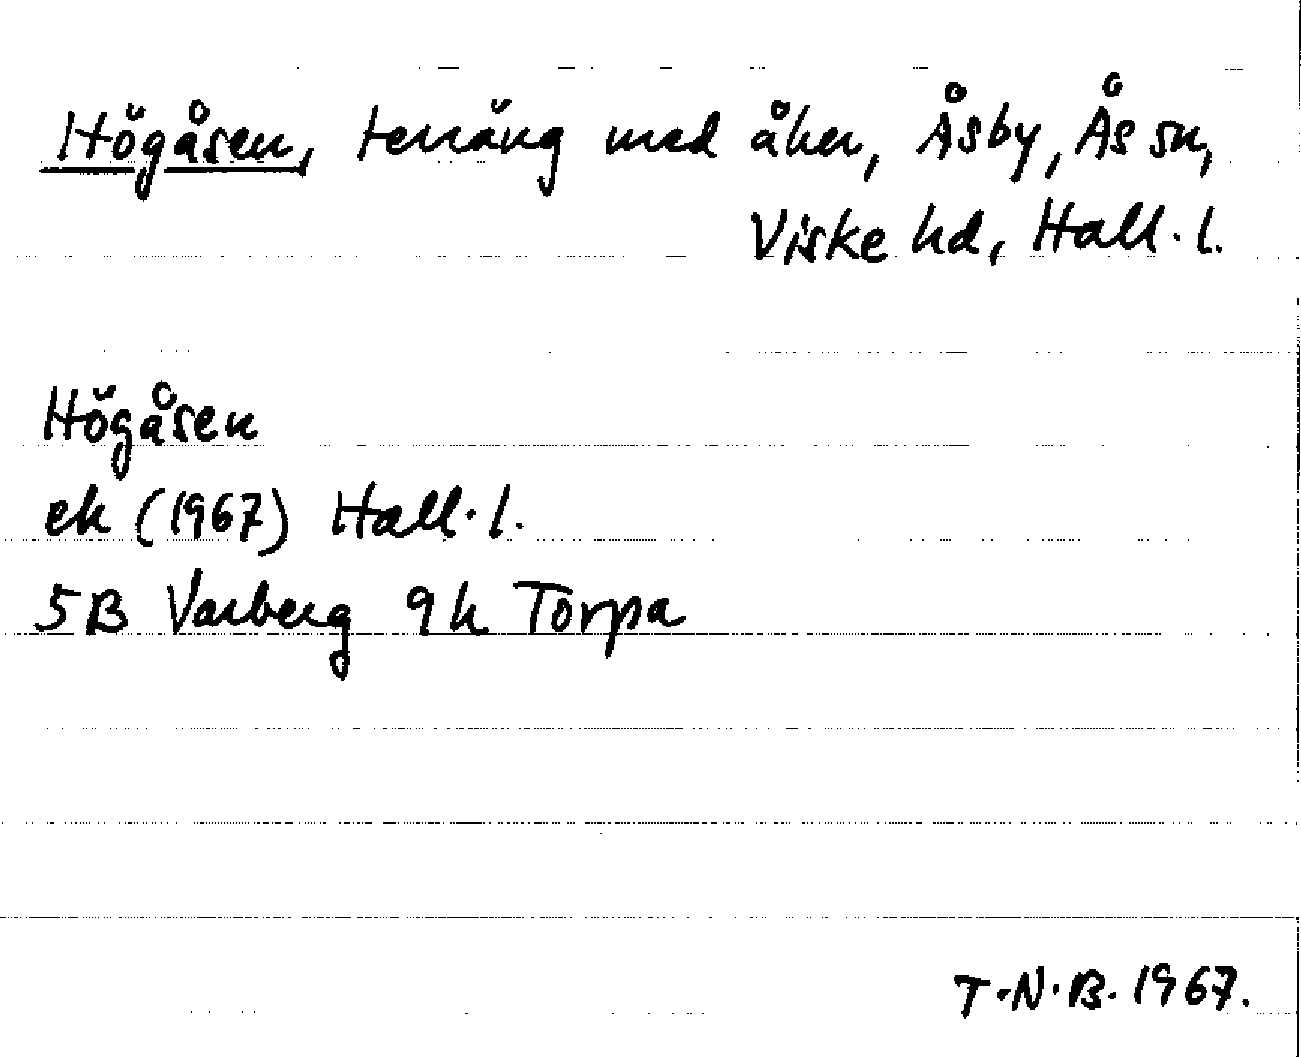 Högåsen, terräng med åker, Åsby, Ås sn,
Viske hd, Hall. l.
Högåsen
ek (1967) Hall. l.
5B Varberg 9h Torpa
T.N.B. 1967.